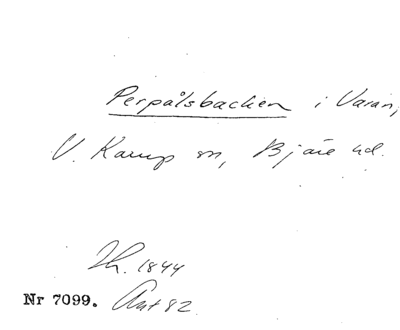 Perpålsbacken i Varan,
V. Karup sn, Bjäre hd.
Th. 1844
Nr 7099. Ant 82